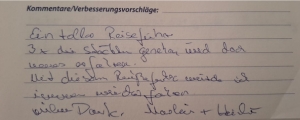 Kommentare/Verbesserungsvorschläge:
Ein toller Reiseführer
3x die Städte gesehen und das
neues erfahren.
Mit diesem Reiseführer würde ich
immer wieder fahren
vielen Dank,